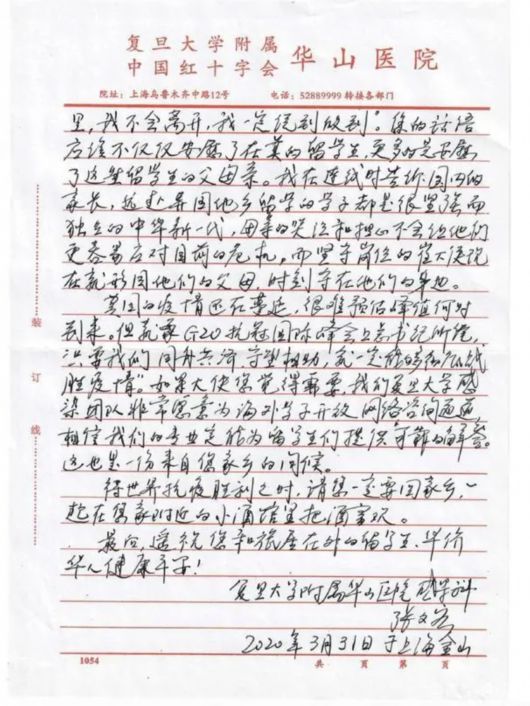 复旦大学附属
中国红十字会 华山医院
院址：上海乌鲁木齐中路12号 电话：52889999 转接各部门
里，我不会离开，我一定说到做到"。您的话语
应该不仅仅安慰了在英的留学生，更多的是安慰
了这些留学生的父母亲。我在连线时告诉国内的
家长，远赴异国他乡留学的学子都是很坚强而
独立的中华新一代，母亲的哭泣和担心不会让他们
更容易应对目前的危机。而坚守岗位的崔大使说
在就形同他们的父母，时刻守在他们的身边。
英国的疫情还在蔓延，很难预估峰值何时
到来，但就像G20抗疫国际峰会上总书记所说，
只要我们同舟共济、守望相助，就一定能够彻底战
胜疫情"。如果大使您觉得需要，我们复旦大学感
染团队非常愿意为海外学子开放网络咨询通道，
相信我们的专业定能为留学生们提供可靠的解答。
这也是一份来自您家乡的问候。
待世界抗疫胜利之时，请您一定要回家乡，一
起在您家附近的小酒馆里把酒言欢。
最后，遥祝您和旅居在外的留学生、华侨
华人健康平安！
复旦大学附属华山医院感染科
张文宏
2020年3月31日于上海金山
装
订
线
1054 共 页 第 页